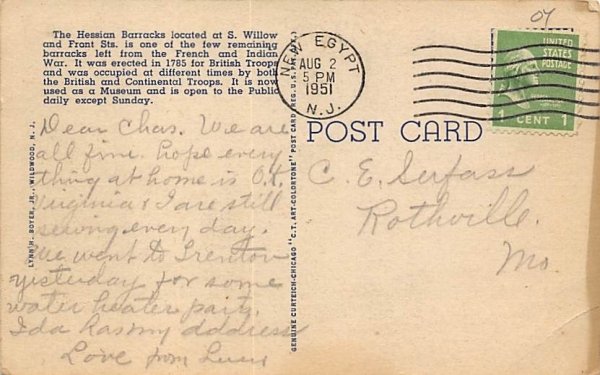 07
The Hessian Barracks located at S. Willow
and Frant Sts. is one of the few remaining
barracks left from the French and Indian
War. It was erected in 1785 for British Troops
and was occupied at different times by both
the British and Continental Troops. It is now
used as a Museum and is open to the Public
daily except Sunday.
NEW EGYPT
AUG 2
5 PM
1951
N.J.
UNITED
STATES
POSTAGE
1 CENT 1
POST CARD
Dear Chas. We are
all fine. hope every
thing at home is O.K.
Virginia & I are still
sewing every day.
We went to Trenton
yesterday for some
water heater parts.
Ida has my address
Love from
C. E. Serfass
Rothville.
Mo.
LYNN H. BOYER, JR., WILDWOOD, N. J.
GENUINE CURTEICH-CHICAGO "C.T. ART-COLORTONE" POST CARD (REG. U.S. PAT. OFF.)